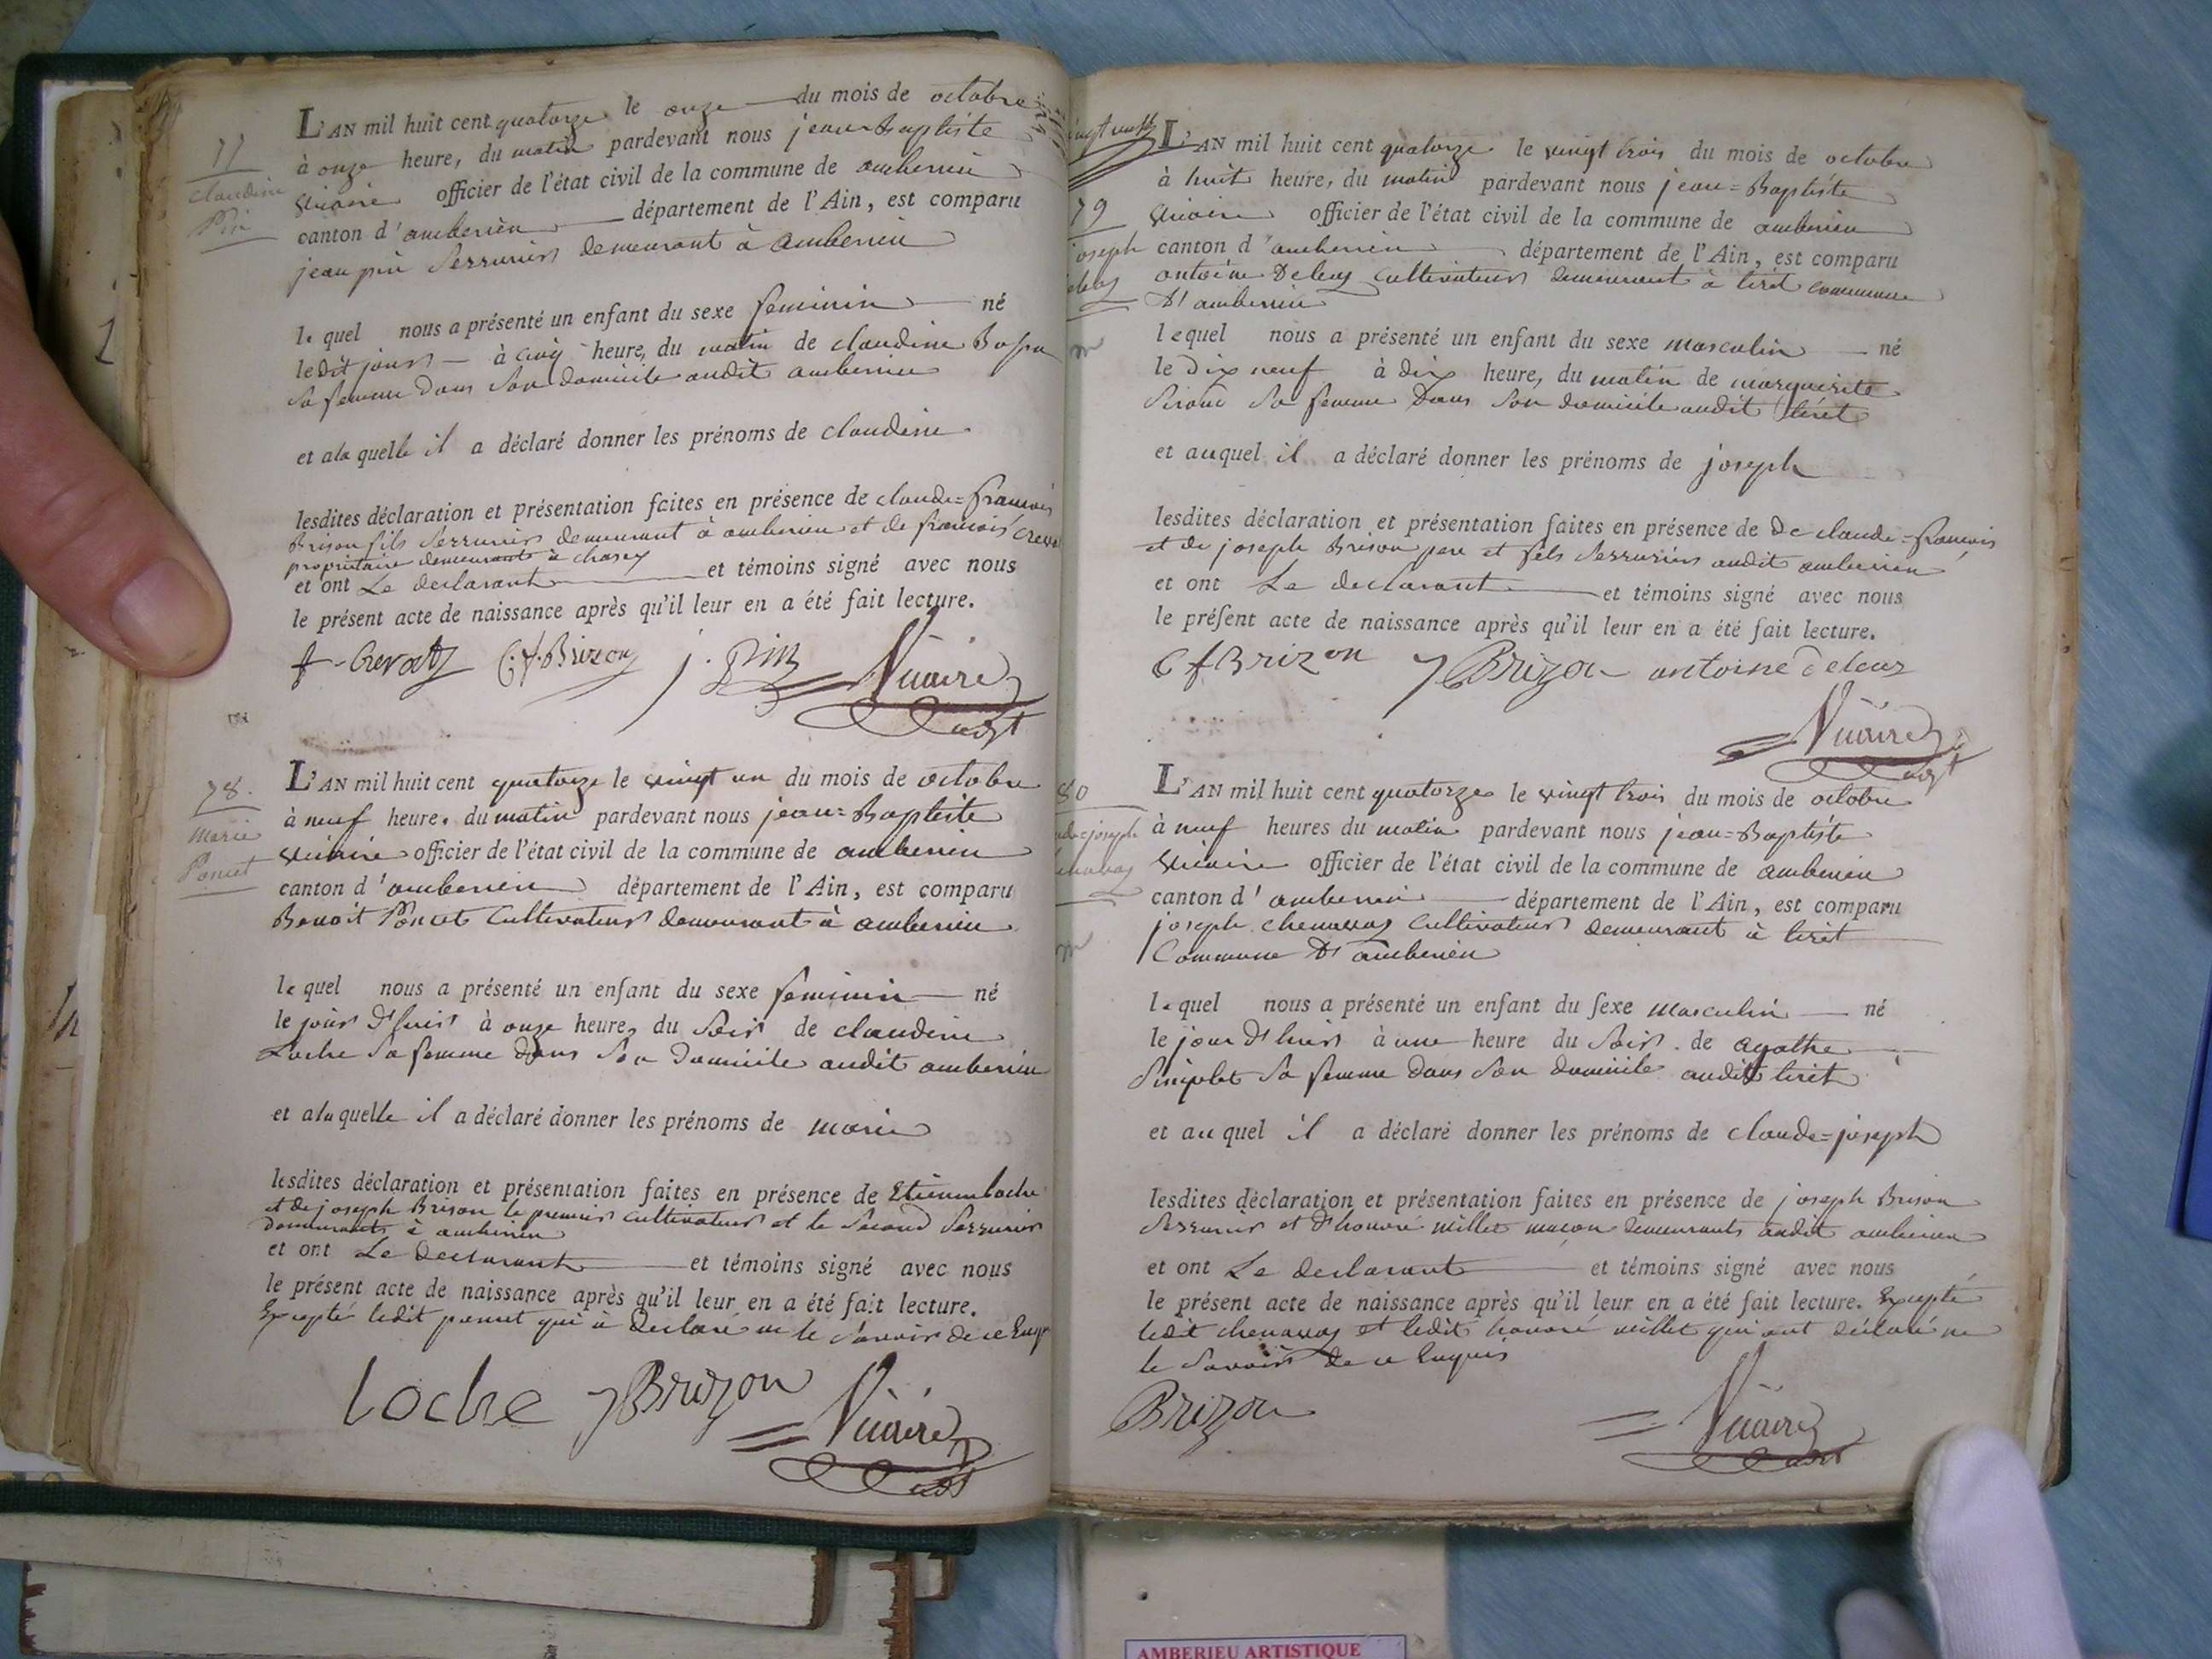 77
claudine
Pin
L'AN mil huit cent quatorze le onze du mois de octobre
à onze heure, du matin pardevant nous jean-baptiste
Vicaire officier de l'état civil de la commune de amberieu
canton d'amberieu département de l'Ain, est comparu
jean pin Serrurier demeurant à amberieu
lequel nous a présenté un enfant du sexe feminin né
ledit jour à cinq heure, du matin de claudine
sa femme dans son domicile audit amberieu
et a la quelle il a déclaré donner les prénoms de claudine
lesdites déclaration et présentation faites en présence de claude=francois
Brison fils Serrurier demeurant à amberieu et de francois
propriétaire demeurants à chasey
et ont Le declarant et témoins signé avec nous
le présent acte de naissance après qu'il leur en a été fait lecture.
f. Crevat C. f. Brizon j. Pin
78.
marie
Poncet
L'AN mil huit cent quatorze le vingt un du mois de octobre
à neuf heure, du matin pardevant nous jean=Baptiste
officier de l'état civil de la commune de amberieu
canton d'amberieu département de l'Ain, est comparu
Benoit Poncet cultivateur demeurant à amberieu
lequel nous a présenté un enfant du sexe feminin né
le jour d'hier à onze heure, du soir de claudine
Loche sa femme dans son domicile audit amberieu
et a la quelle il a déclaré donner les prénoms de marie
lesdites déclaration et présentation faites en présence de Etienne Loche
et de joseph Brison le premier cultivateur et le second Serrurier
demeurants à amberieu
et ont Le declarant et témoins signé avec nous
le présent acte de naissance après qu'il leur en a été fait lecture.
Excepté ledit poncet qui a declaré ne le savoir de ce Enquis
loche J Brizon
79
joseph
L'AN mil huit cent quatorze le vingt trois du mois de octobre
à huit heure, du matin pardevant nous jean=Baptiste
officier de l'état civil de la commune de amberieu
canton d'amberieu département de l'Ain, est comparu
antoine Deleaz cultivateur demeurant à tiret commune
D'amberieu
lequel nous a présenté un enfant du sexe masculin né
le dix neuf à dix heure, du matin de marguerite
sa femme dans son domicile audit tiret
et auquel il a déclaré donner les prénoms de joseph
lesdites déclaration et présentation faites en présence de De claude=francois
et de joseph Brison pere et fils Serruriers audit amberieu
et ont Le declarant et témoins signé avec nous
le présent acte de naissance après qu'il leur en a été fait lecture.
C f Brizon J Brizon antoine deleaz
80
L'AN mil huit cent quatorze le vingt trois du mois de octobre
à neuf heures du matin pardevant nous jean=Baptiste
officier de l'état civil de la commune de amberieu
canton d'amberieu département de l'Ain, est comparu
joseph chenavaz cultivateur demeurant à tiret
Commune D'amberieu
lequel nous a présenté un enfant du sexe masculin né
le jour d'hier à une heure du soir de agathe
sa femme dans son domicile audit tiret
et auquel il a déclaré donner les prénoms de claude=joseph
lesdites déclaration et présentation faites en présence de joseph Brison
Serrurier et d'honoré millet maçon demeurants audit amberieu
et ont Le declarant et témoins signé avec nous
le présent acte de naissance après qu'il leur en a été fait lecture. Excepté
ledit chenavaz et ledit honoré millet qui ont déclaré ne
le savoir de ce Enquis
Brizon
AMBERIEU ARTISTIQUE